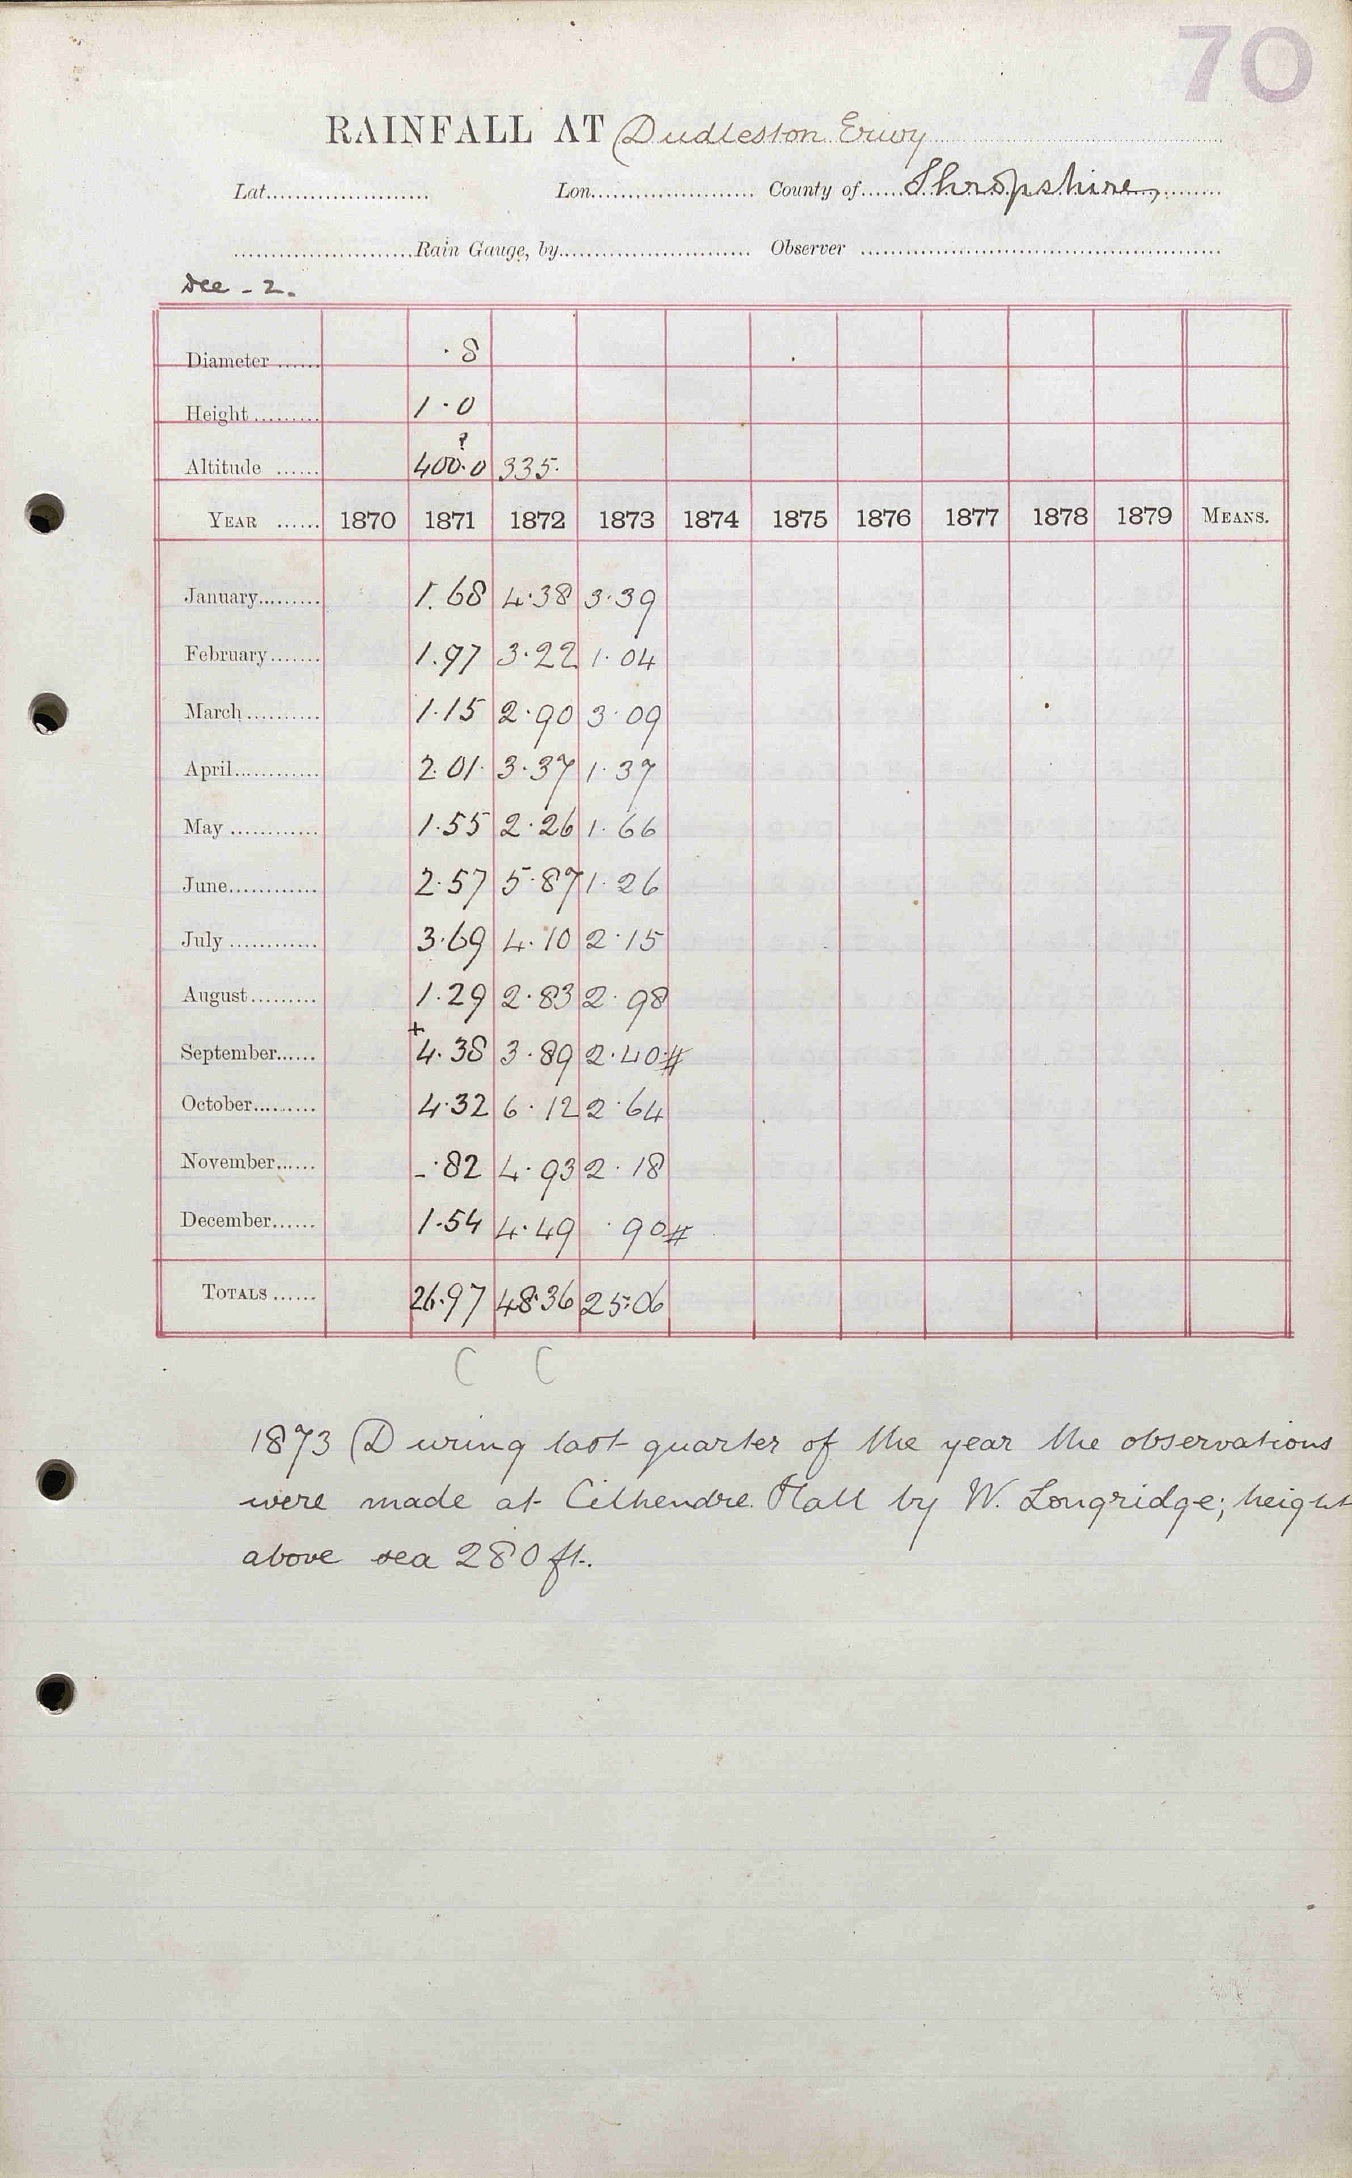 70
RAINFALL AT Dudleston Erwy
Lat. Lon. County of Shropshire,
Rain Gauge, by Observer
Dee - 2.
Diameter ·8
Height 1·0
?
Altitude 400·0 335·
YEAR 1870 1871 1872 1873 1874 1875 1876 1877 1878 1879 MEANS.
January 1.68 4·38 3·39
February 1.97 3·22 1·04
March 1·15 2·90 3·09
April 2.01· 3·37 1·37
May 1·55 2·26 1·66
June 2·57 5·87 1·26
July 3·69 4·10 2·15
August 1·29 2·83 2·98
+
September 4·38 3·89 2·40#
October 4·32 6·12 2·64
November -·82 4·93 2·18
December 1·54 4·49 ·90#
TOTALS 26·97 48·36 25·06
C C
1873 During last quarter of the year the observations
were made at Cilhendre Hall by W. Longridge; height
above sea 280 ft.